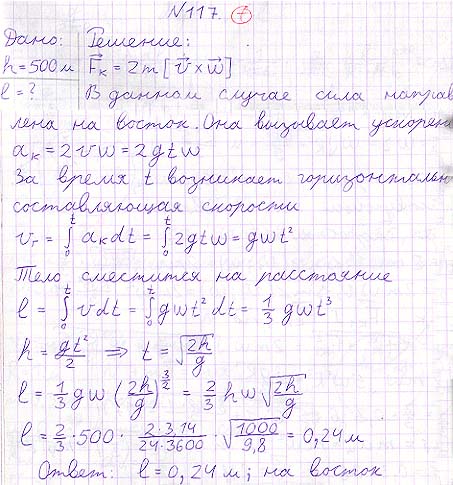 N 117. 7
Дано: Решение:
h = 500 м F⃗к = 2m [v⃗ × w⃗]
l = ? В данном случае сила направ
лена на восток. Она вызывает ускорени
aк = 2vw = 2gtw
За время t возникает горизонтальн
составляющая скорости
vг = ∫₀ᵗ aк dt = ∫₀ᵗ 2gtw = gwt²
Тело сместится на расстояние
l = ∫₀ᵗ v dt = ∫₀ᵗ gwt² dt = 1/3 gwt³
h = gt²/2 ⇒ t = √(2h/g)
l = 1/3 gw (2h/g)^(3/2) = 2/3 hw √(2h/g)
l = 2/3 · 500 · (2·3,14)/(24·3600) · √(1000/9,8) = 0,24 м
Ответ: l = 0,24 м; на восток